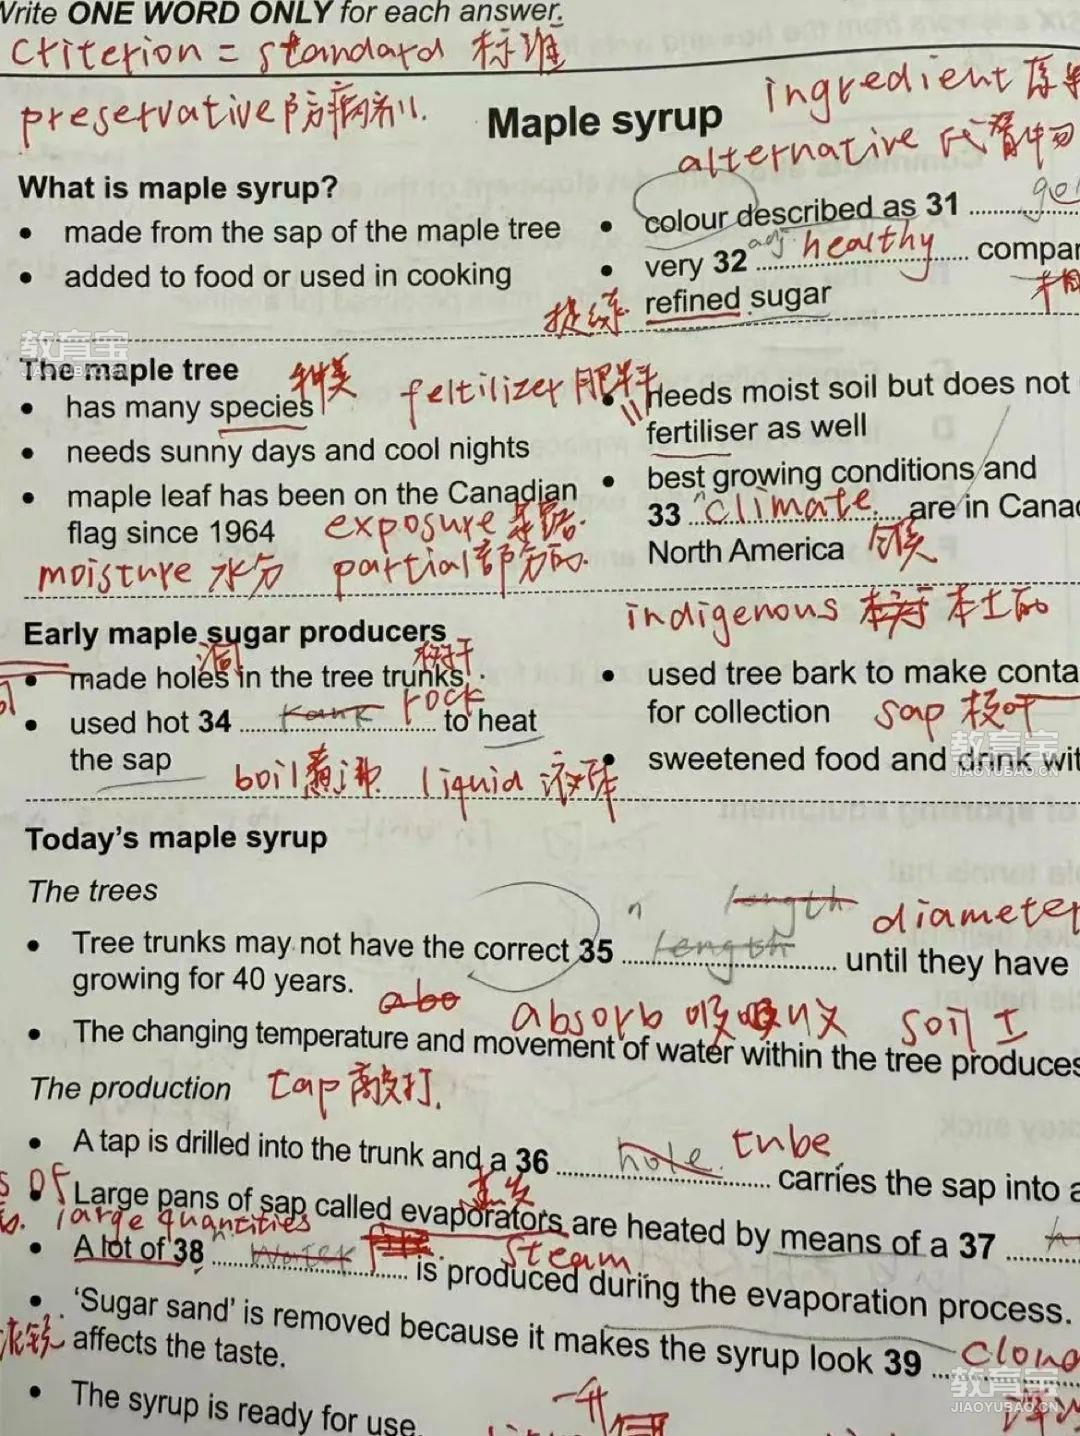 Write ONE WORD ONLY for each answer.
criterion = standard 标准
preservative 防病剂.
ingredient
Maple syrup
alternative 代替物
What is maple syrup?
• made from the sap of the maple tree
• added to food or used in cooking
• colour described as 31
• very 32 adj. healthy
提练 refined sugar
The maple tree
种类
feltilizer 肥料
• has many species
• needs sunny days and cool nights
• maple leaf has been on the Canadian
flag since 1964
exposure 暴露.
moisture 水分 partial 部分的.
• needs moist soil but does not
fertiliser as well
• best growing conditions and
33 n climate are in
North America 气候
indigenous 本土的
Early maple sugar producers
洞 树干
• made holes in the tree trunks
• used hot 34 rock to heat
the sap
boil 煮沸 liquid 液体
• used tree bark to make
for collection sap 枝叶
• sweetened food and drink
Today's maple syrup
The trees
n length diameter
• Tree trunks may not have the correct 35 length until they have
growing for 40 years.
abo absorb 吸收 soil 土
• The changing temperature and movement of water within the tree produces
The production tap 敲打.
• A tap is drilled into the trunk and a 36 hole tube carries the sap into a
of 蒸发
• Large pans of sap called evaporators are heated by means of a 37
large quantities
• A lot of 38 n. water steam is produced during the evaporation process.
• 'Sugar sand' is removed because it makes the syrup look 39
affects the taste.
• The syrup is ready for use
教育宝
JIAOYUBAO.CN
教育宝
JIAOYUBAO.CN
教育宝
JIAOYUBAO.CN